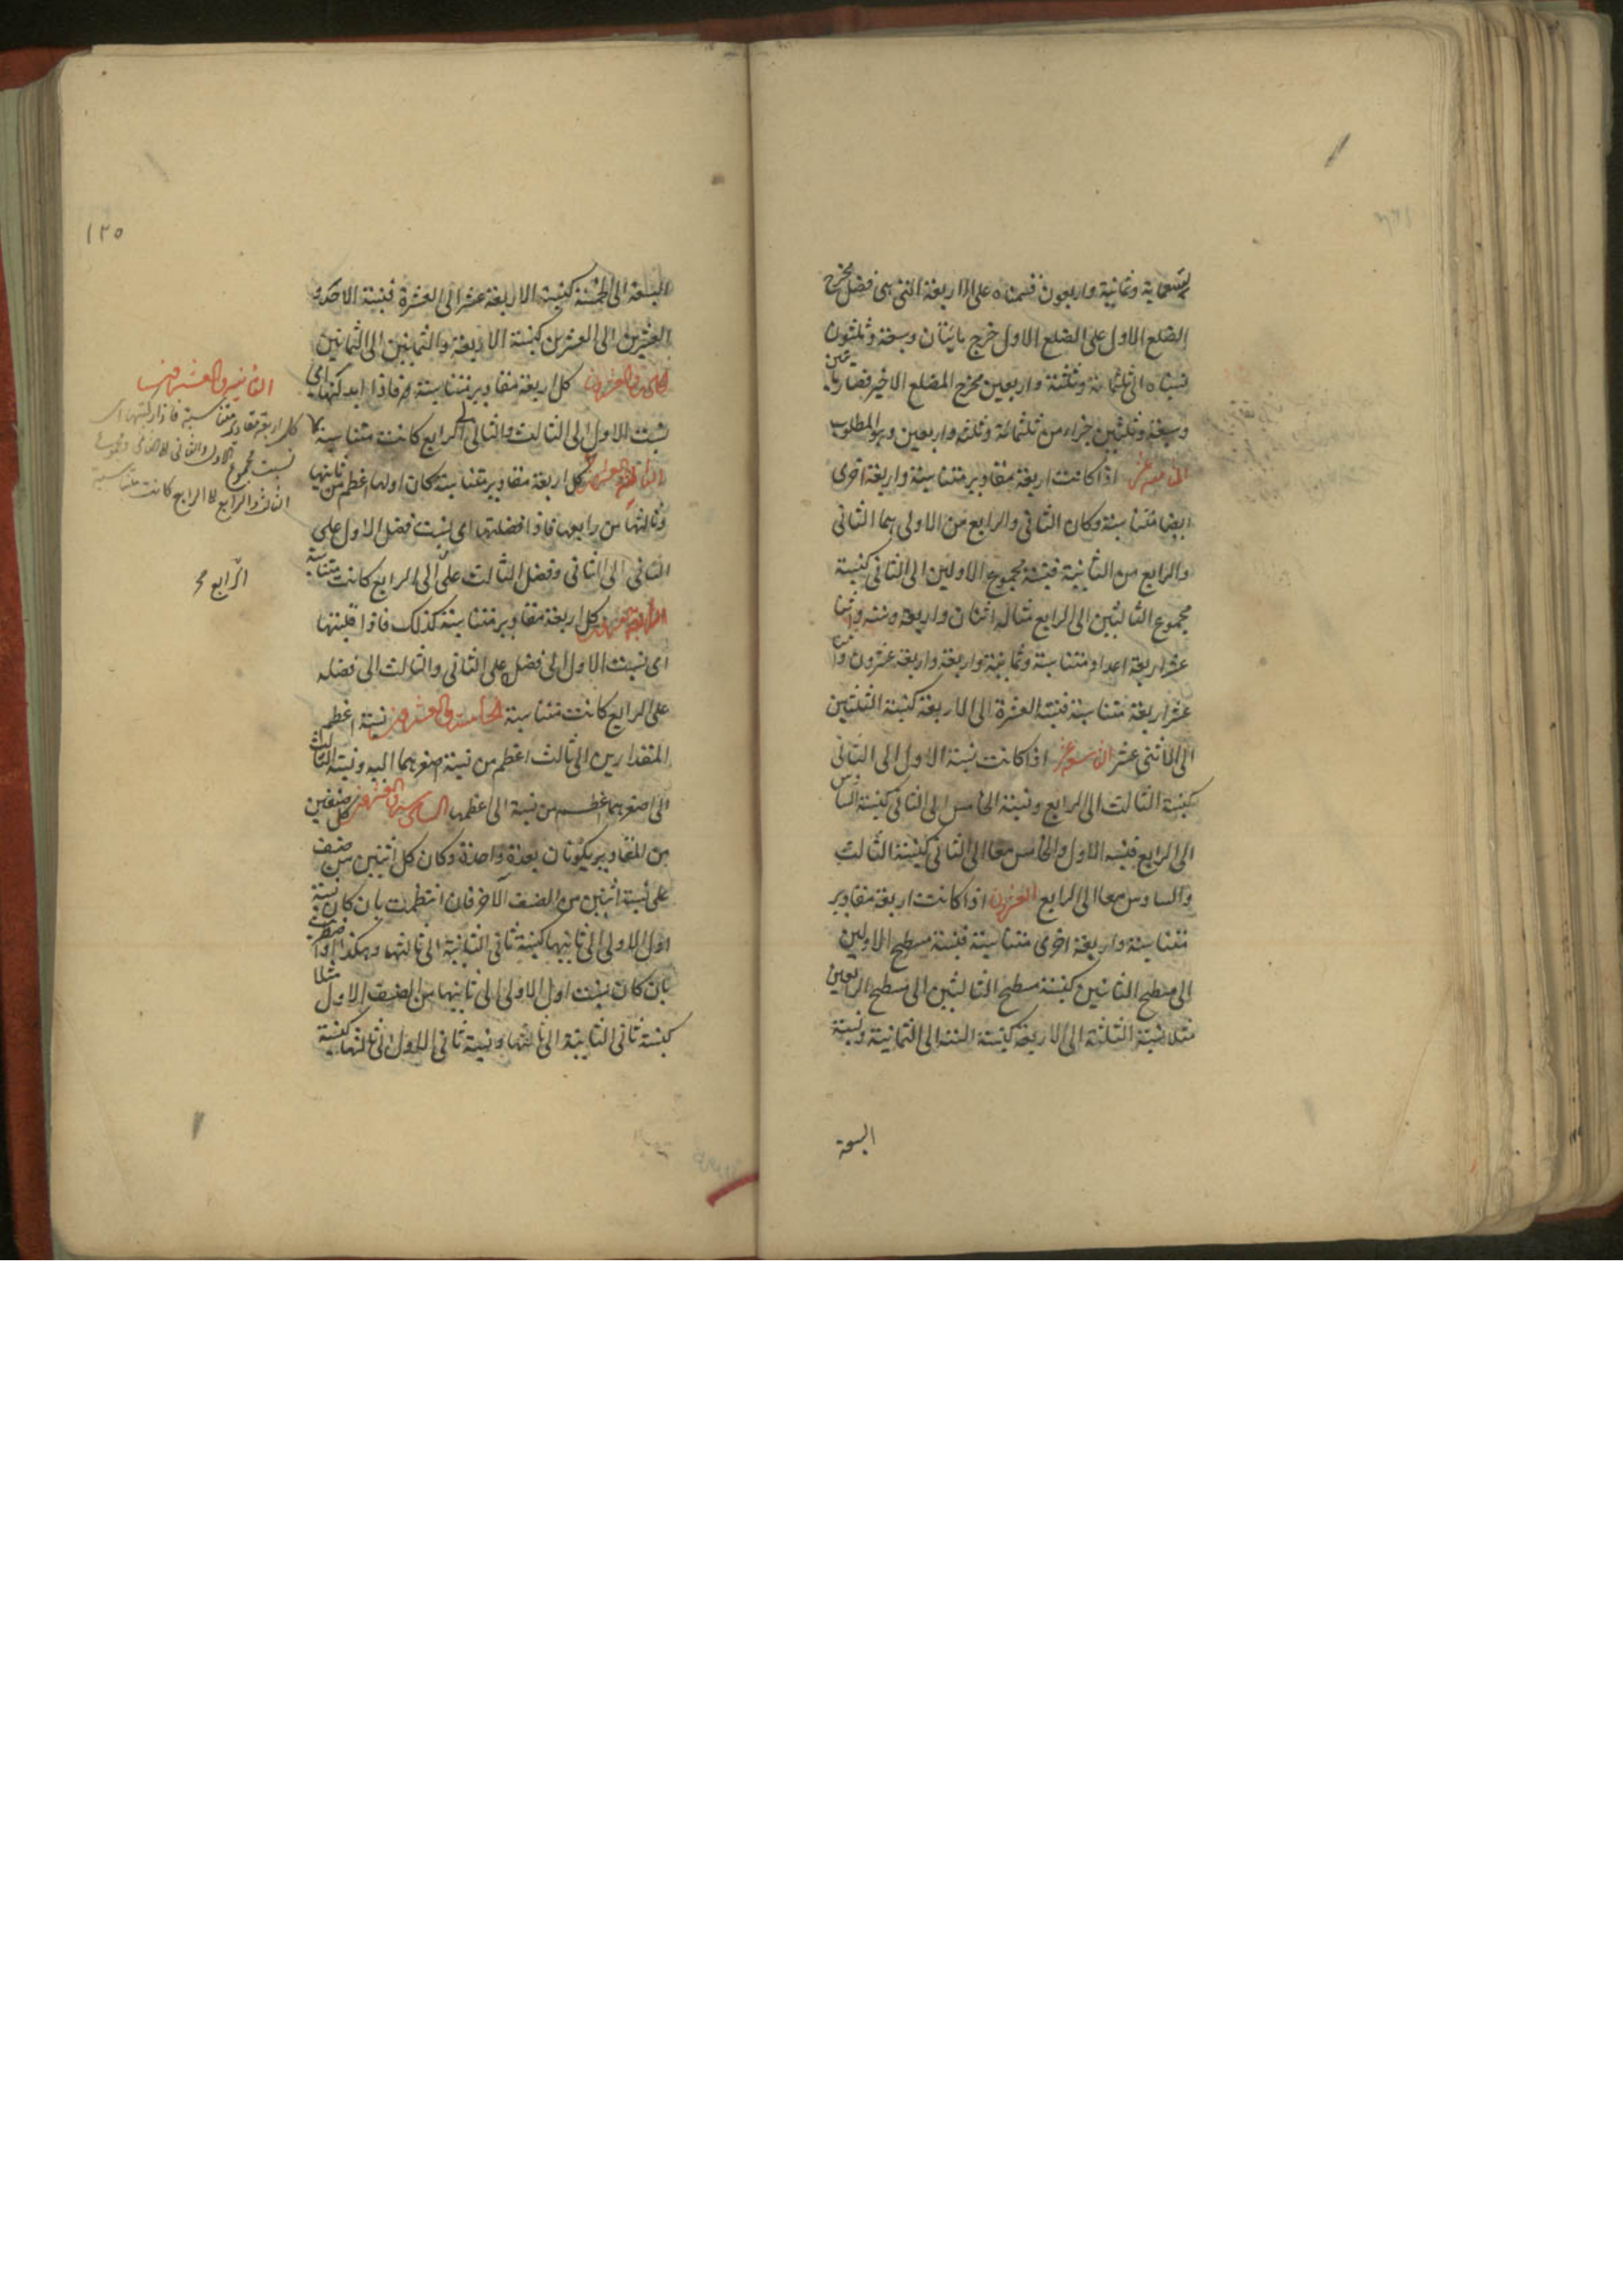 تسعمایة وثمانیة واربعون قسمناه علی الاربعة التی هی فضل مخرج
الضلع الاول علی الضلع الاول خرج مایتان وسبعة وثلثون
نسبناه الی ثلثمائة وثلثة واربعین مخرج المضلع الاخیر فصار مایتین
وسبعة وثلثین جزاء من ثلثمائة وثلثه واربعین وهو المطلوب
اذا کانت اربعة مقادیر متناسبة واربعة اخری
ایضا متناسبة وکان الثانی والرابع من الاولی هما الثانی
والرابع من الثانیة فنسبة مجموع الاولین الی الثانی کنسبة
مجموع الثالثین الی الرابع مثاله اثنان واربعة وستة واثنا
عشر اربعة اعداد متناسبة وثمانیة واربعة واربعة عشرون واثنا
عشر اربعة متناسبة فنسبة العشرة الی الاربعة کنسبة الثلثین
الی الاثنی عشر التاسعة عشر اذا کانت نسبة الاول الی الثانی
کنسبة الثالث الی الرابع ونسبة الخامس الی الثانی کنسبة السادس
الی الرابع فنسبه الاول والخامس معا الی الثانی کنسبة الثالث
والسادس معا الی الرابع العشرون اذا کانت اربعة مقادیر
متناسبة واربعة اخری متناسبة فنسبة مسطح الاولین
الی مسطح الثانیین کنسبة مسطح الثالثین الی مسطح الرابعین
مثلا نسبة الثلثة الی الاربعة کنسبة الستة الی الثمانیة ونسبة
السبعة
١٢٥
السبعة الی الخمسة کنسبة الاربعة عشر الی العشرة فنسبة الاحد و
العشرین الی العشرین کنسبة الاربعة والثمانین الی الثمانین
الحادیة والعشرون کل اربعة مقادیر متناسبة فاذا ابدلتها ای
نسبت الاول الی الثالث والثانی الی الرابع کانت متناسبة
الثانیة والعشرون کل اربعة مقادیر متناسبة کان اولها اعظم من ثانیها
وثالثها من رابعها فاذا فضلتها ای نسبت فضل الاول علی
الثانی الی الثانی وفضل الثالث علی الی الرابع کانت متناسبة
کل اربعة مقادیر متناسبة کذلک فاذا قلبتها
ای نسبت الاول الی فضله علی الثانی والثالث الی فضله
علی الرابع کانت متناسبة الخامسة والعشرون نسبة اعظم
المقدارین الی ثالث اعظم من نسبة اصغرهما الیه ونسبة الثالث
الی اصغرهما اعظم من نسبة الی اعظمها السادسة والعشرون کل صنفین
من المقادیر یکونان بعدة واحدة وکان کل اثنین من صنف
علی نسبة اثنین من الصنف الاخر فان انتظمت بان کان نسبة
اول الاولی الی ثانیها کنسبة ثانی الثانیة الی ثالثها وهکذا او اضطربت
بان کان نسبت اول الاولی الی ثانیها من الصنف الاول مثلا
کنسبة ثانی الثانیة الی ثالثها ونسبة ثانی الاول الی ثالثها کنسبة
الثانیة والعشرون
کل اربعة مقادیر متناسبة فاذا رکبتها ای
نسبت مجموع الاول والثانی الی الثانی ومجموع
الثالث والرابع الی الرابع کانت متناسبة
الرابع